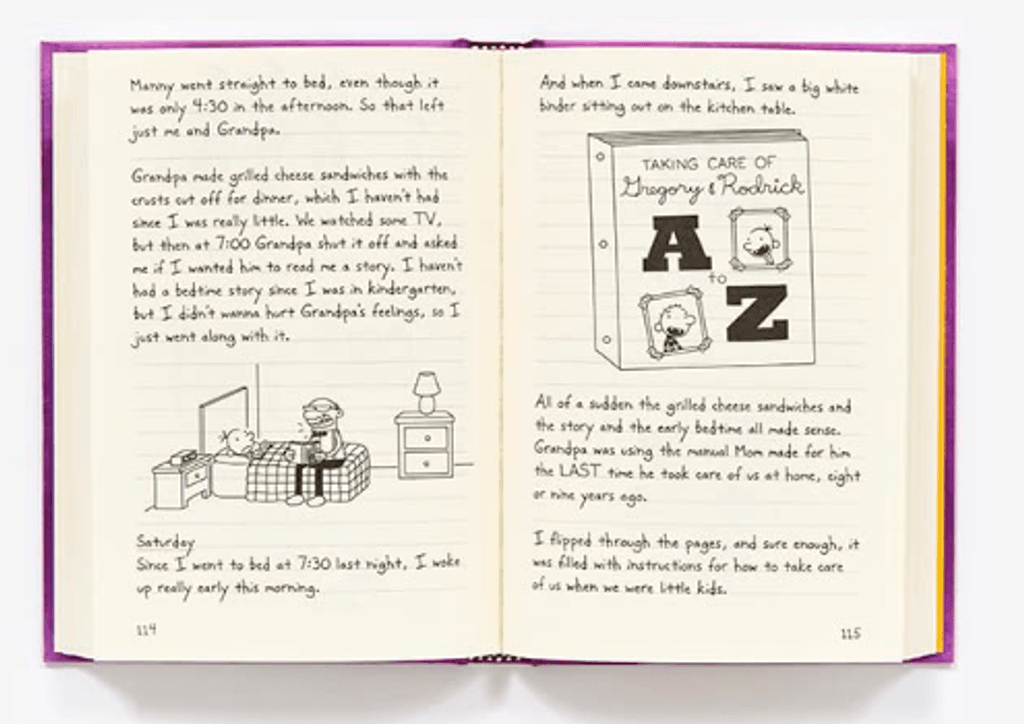 Manny went straight to bed, even though it
was only 4:30 in the afternoon. So that left
just me and Grandpa.
Grandpa made grilled cheese sandwiches with the
crusts cut off for dinner, which I haven't had
since I was really little. We watched some TV,
but then at 7:00 Grandpa shut it off and asked
me if I wanted him to read me a story. I haven't
had a bedtime story since I was in kindergarten,
but I didn't wanna hurt Grandpa's feelings, so I
just went along with it.
Saturday
Since I went to bed at 7:30 last night, I woke
up really early this morning.
114
And when I came downstairs, I saw a big white
binder sitting out on the kitchen table.
TAKING CARE OF
Gregory & Rodrick
A
to
Z
All of a sudden the grilled cheese sandwiches and
the story and the early bedtime all made sense.
Grandpa was using the manual Mom made for him
the LAST time he took care of us at home, eight
or nine years ago.
I flipped through the pages, and sure enough, it
was filled with instructions for how to take care
of us when we were little kids.
115